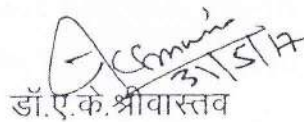 31/5/17
डॉ.ए.के.श्रीवास्तव